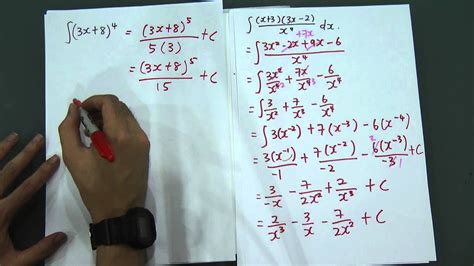 ∫(3x+8)⁴ = (3x+8)⁵/5(3) + C
= (3x+8)⁵/15 + C
∫ (x+3)(3x-2)/x⁴ dx.
+7x
= ∫ 3x² - 2x + 9x - 6/x⁴
= ∫ 3x²/x⁴² + 7x/x⁴³ - 6/x⁴
= ∫ 3/x² + 7/x³ - 6/x⁴
= ∫ 3(x⁻²) + 7(x⁻³) - 6(x⁻⁴)
= 3(x⁻¹)/-1 + 7(x⁻²)/-2 - ²6(x⁻³)/-3 1 + C
= 3/-x - 7/2x² + 2/x³ + C
= 2/x³ - 3/x - 7/2x² + C